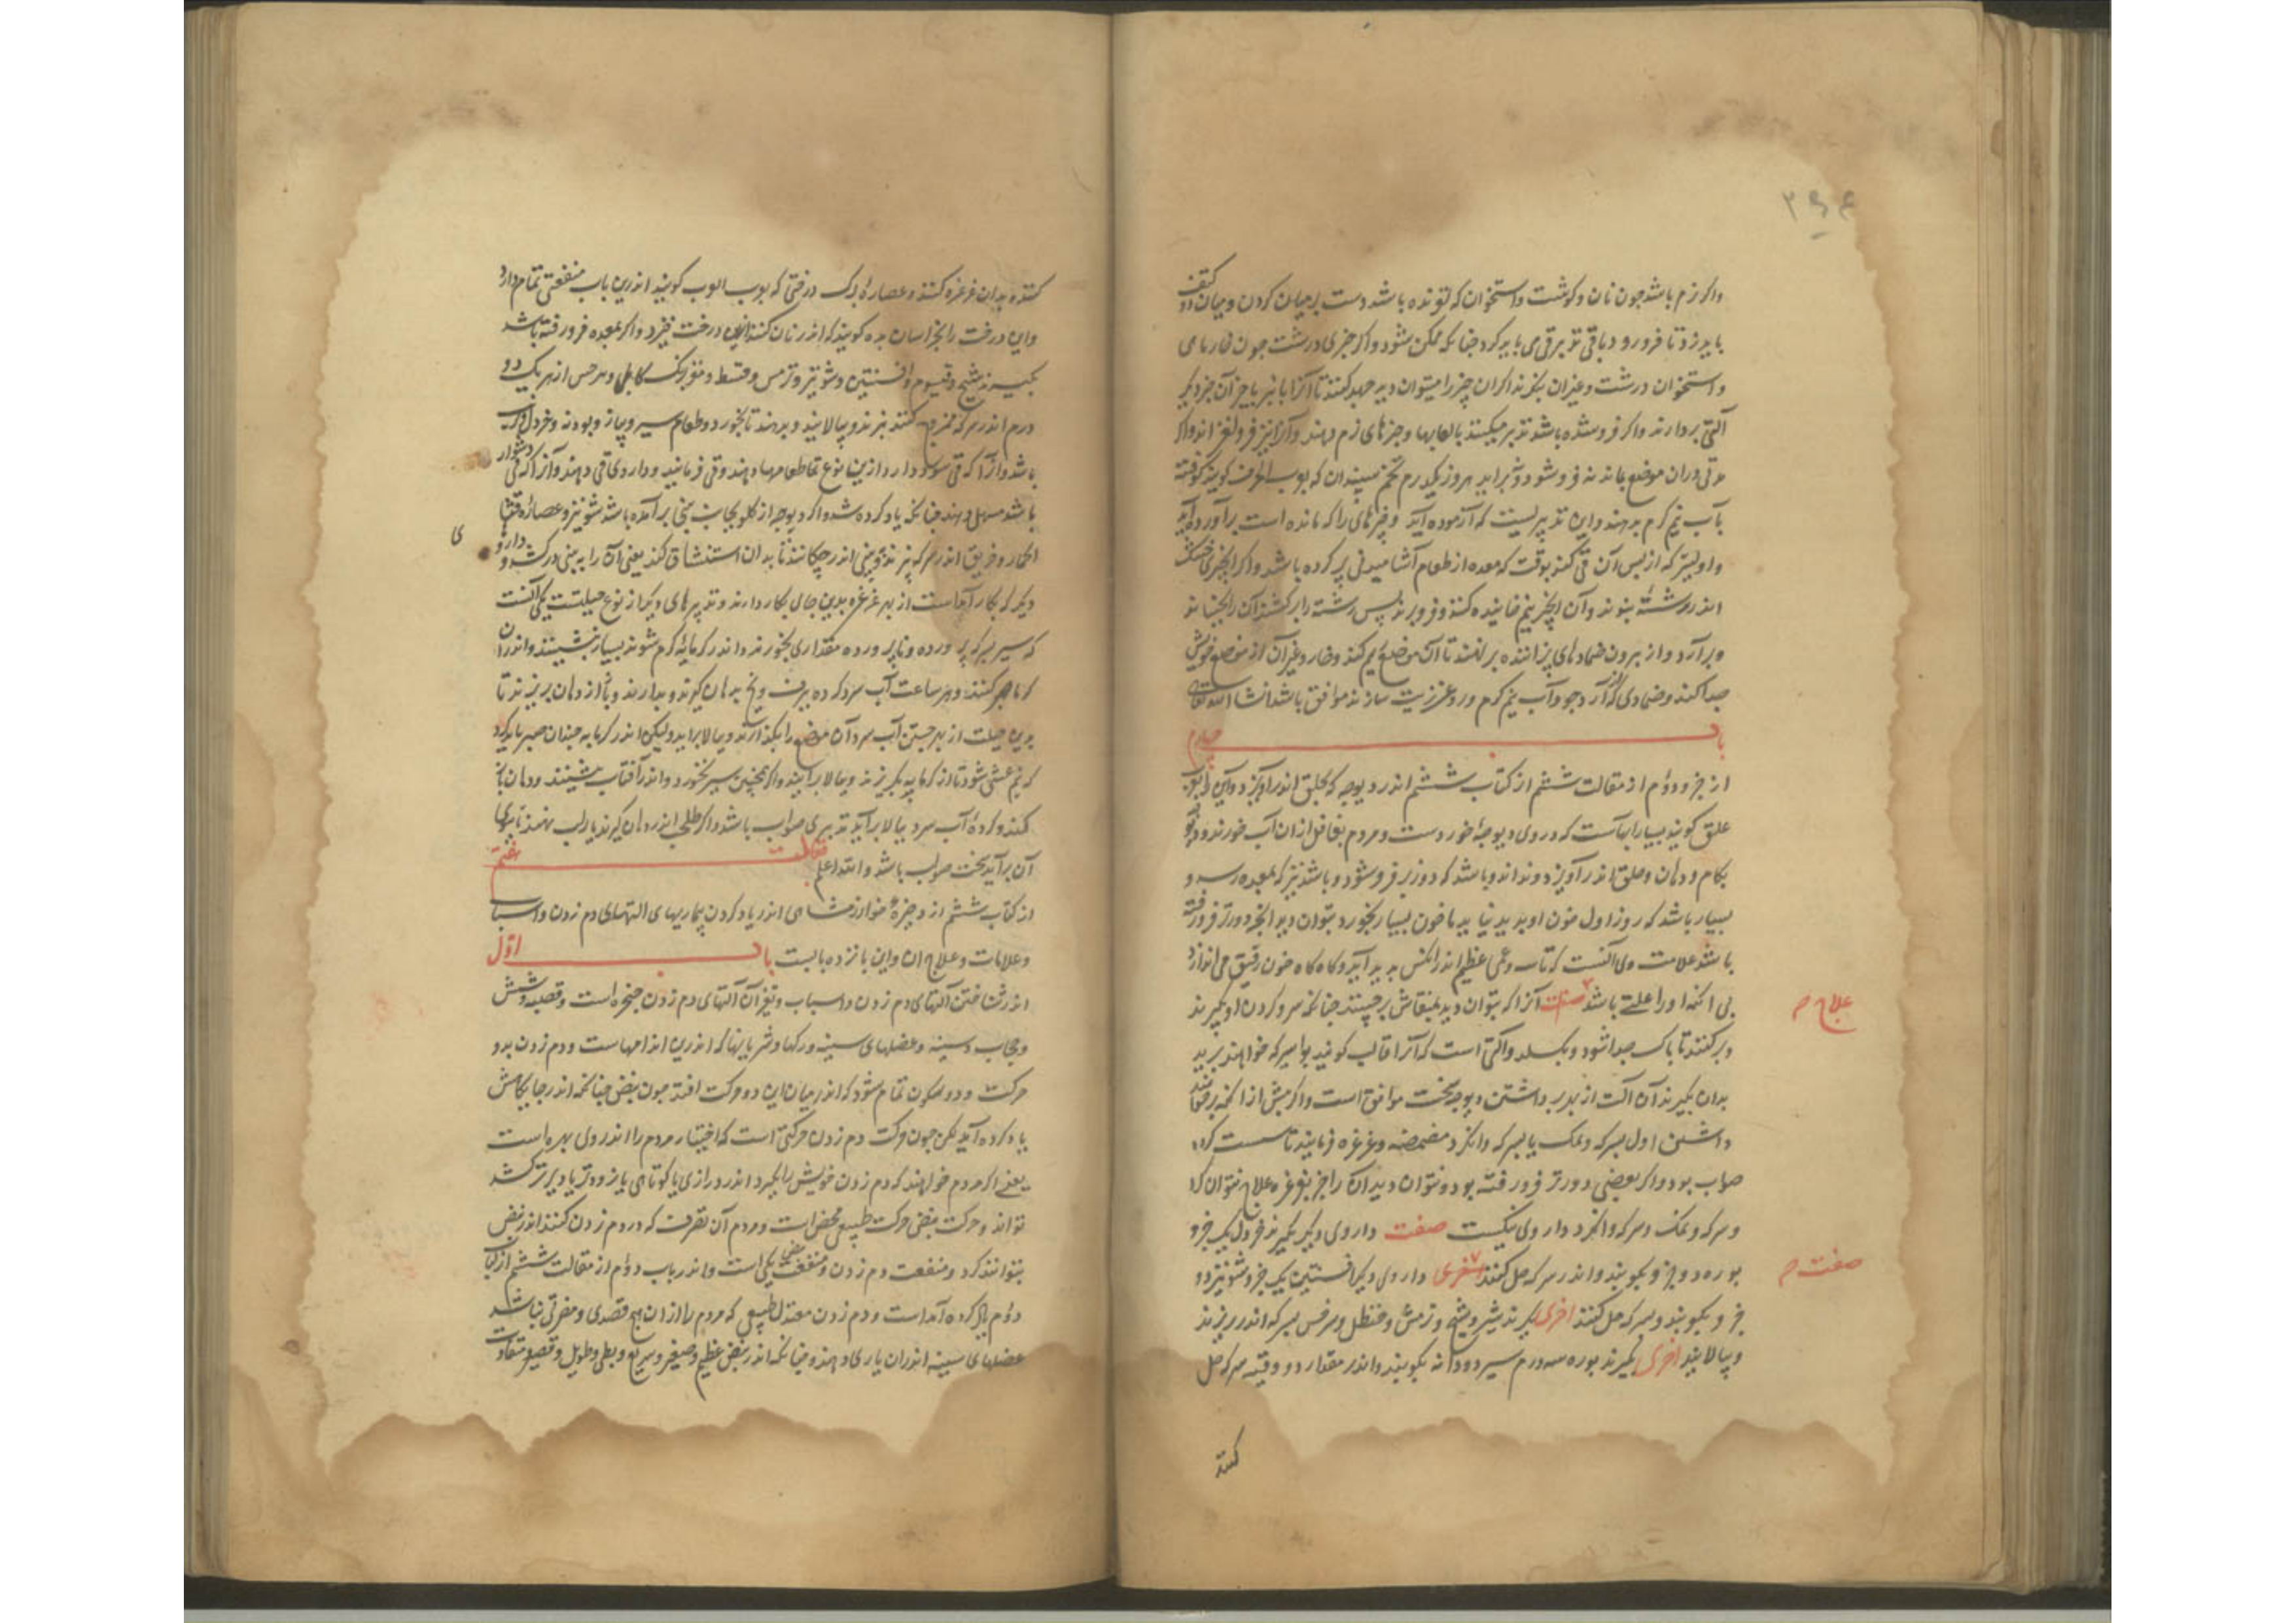 واکر نرم باشد جون نان و کوشت و استخوان که تونده باشد دست بر میان کردن و میان دو کتف
باید زد تا فرو رود و باقی تدبر قی می باید کرد جنانکه ممکن شود و اکر جیزی درشت جون خار ماهی
و استخوان درشت و غیر ان بنکرند اکر ان چیز را میتوان دید جهد کنند تا آنرا با نبر یا جز آن جیز دیکر
آلتی بردارند و اکر فرو شده باشد تدبیر میکنند بالعابها و جیزهای نرم دهند و آنرا نیز فرو لغزاند و اکر
مدتی دران موضع بماند نه فرو شود و نه براید هر روز یکدرم تخم سپندان که بوب الحرف کویند کوفته
بآب نیم کرم بدهند و این تدبیریست که آزموده آید و جیزهای را که مانده است برآورده آید
و اولیتر که از پس آن قی کنند بوقت که معده از طعام آشامیدنی پر کرده باشد و اکر انجیری خشک
اندر رشتهٔ بنوند و آن انجیر نیم خاییده کنند و فرو برند پس رشته را برکشند آن را بجنباند
و برآرد و از بیرون ضمادهای پزاننده برنهند تا آن موضع ریم کند و خار و غیر آن از موضع خویش
جدا کند و ضمادی که از آرد جو و آب نیم کرم و روغن زیت سازند موافق باشد انشا الله تعالی
باب چهارم
از جزو دوم از مقالت ششم از کتاب ششم اندر دیوجه که بحلق اندر آویزد و آن را بتازی
علق کویند بسیار ابهاست که در وی دیوجهٔ خوردست و مردم بغافل ازان آب خورند و دیوجه
بکام و دهان و حلق اندر آویزد و نداند و باشد که دوز بر فرو شود و باشد نیز که بمعده رسد و
بسیار باشد که روز اول خون او بدید نیاید تا خون بسیار نخورد بتوان دید انجه دورتر فرو رفته
باشد علامت وی آنست که تاسه و غمی عظیم اندرانکس بدید آید و کاه کاه خون رقیق می اندازد
بی انکه او را علتی باشد صفت آنرا که بتوان دید بمنقاش برچینند جنانکه سر و کردن او بکیرند
و برکنند تا پاک جدا شود و نکسلد و آلتی است که آنرا قالب کویند بواسیر که خواهند برید
بدان بکیرند آن آلت از بهر برداشتن دیوجه سخت موافق است و اکر پیش از انکه برخواهند
داشتن اول بسرکه و نمک یا بسرکه و انکزد مضمضه و غرغره فرمایند تا سست کردد
صواب بود و اکر بعضی دورتر فرو رفته بود و نتوان دید آن را جز بغرغره علاج نتوان کرد
و سرکه و نمک و سرکه و انکزد داروی نیکست صفت داروی دیکر بکیرند خردل یک جزو
بوره دو جزو بکوبند و اندر سرکه حل کنند اخری داروی دیکر افسنتین یک جزو شونیز دو
جزو بکوبند و بسرکه حل کنند اخری بکیرند شیر و شیح و ترمس و حنظل و سرخس بسرکه اندر بپزند
و بپالایند اخری بکیرند بوره سه درم سیر دو دانه بکوبند و اندر مقدار دو وقیه سرکه حل
کنند
علاج م
صفت م
کنند و بدان غرغره کنند و عصارهٔ برک درختی که بوب الوب کویند اندرین باب منفعتی تمام دارد
و این درخت را بخراسان بده کویند که اندر نان کنند این درخت خیزد و اکر بمعده فرو رفته باشد
بکیرند شیح و قیسوم و افسنتین و شونیز و ترمس و قسط و مغز برنک کابلی و سرخس از هر یک دو
درم اندر سرکه ممزوج کنند بپزند و بپالایند و بدهند تا بخورد و طعام سیر و پیاز و بودنه و خردل
باشد و آنرا که قی سود دارد ازین نوع طعامها دهند و قی فرمایند و داروی قی دهند و آنرا که قی دشوار
باشد مسهل دهند جنانکه یاد کرده شد و اکر دیوجه از کلو بجانب بینی برآمده باشد شونیز و عصارهٔ قثا
الحمار و خربق اندر سرکه بپزند و به بینی اندر جکانند تا بدان استنشاق کند یعنی آن را به بینی درکشد و دارو
دیکر که بکار آمدست از بهر غرغره بدین جای بکار دارند و تدبیرهای دیکر از نوع حیلتست یکی آنست
که سیر بسرکه پرورده و ناپرورده مقداری بخورند و اندر کرمابهٔ کرم شوند بسیار بنشینند و اندران
کرما صبر کنند و هر ساعت آب سرد کرده ببرف و یخ بدهان کیرند و بدارند و باز از دهان بریزند تا
بدین حیلت از بهر جستن آب سرد آن موضع را بکذارند و ببالا براید و لیکن اندر کرمابه جندان صبر باید کرد
که نیم غشی شود تا از کرمابه بکریزند و ببالا برآیند و اکر همچنین سیر بخورد و اندر آفتاب بنشینند و دهان باز
کنند و کردهٔ آب سرد ببالا برآید تدبیری صواب باشد و اکر طحلب اندر دهان کیرند یا بر لب نهند تا ببوی
آن برآید سخت صواب باشد و الله اعلم مقالت هفتم
از کتاب ششم از ذخیرهٔ خوارزمشاهی اندر یاد کردن بیماریهای التهای دم زدن و اسباب
و علامات و علاج ان و این پانزده بابست باب اول
اندر شناختن آلتهای دم زدن و اسباب و تغیر آن آلتهای دم زدن حنجره است و قصبه و شش
و حجاب و سینه و عضلهای سینه و رکها و شریانها که اندرین اندامهاست و دم زدن بدو
حرکت و دو سکون تمام شود که اندر میان این دو حرکت افتد جون نبض جنانکه اندر جایکاهش
یاد کرده آید لکن جون حرکت دم زدن حرکتی است که اختیار مردم را اندر وی بهره است
یعنی اکر مردم خواهند که دم زدن خویش را بکیرد اندر درازی یا کوتاهی یا زودتر یا دیرتر کشد
تواند و حرکت نبض حرکت طبیعی محض است و مردم آن تصرف که در دم زدن کنند اندر نبض
نتوانند کرد و منفعت دم زدن و منفعت نبض یکی است و اندر باب دوم از مقالت ششم از کتاب
دوم یاد کرده آمدست و دم زدن معتدل طبیعی که مردم را ازان هیج قصدی و مضرتی نباشد
عضلهای سینه اندران یاری دهند و جنانکه اندر نبض عظیم و صغیر و سریع و بطی و طویل و قصیر و متفاوت